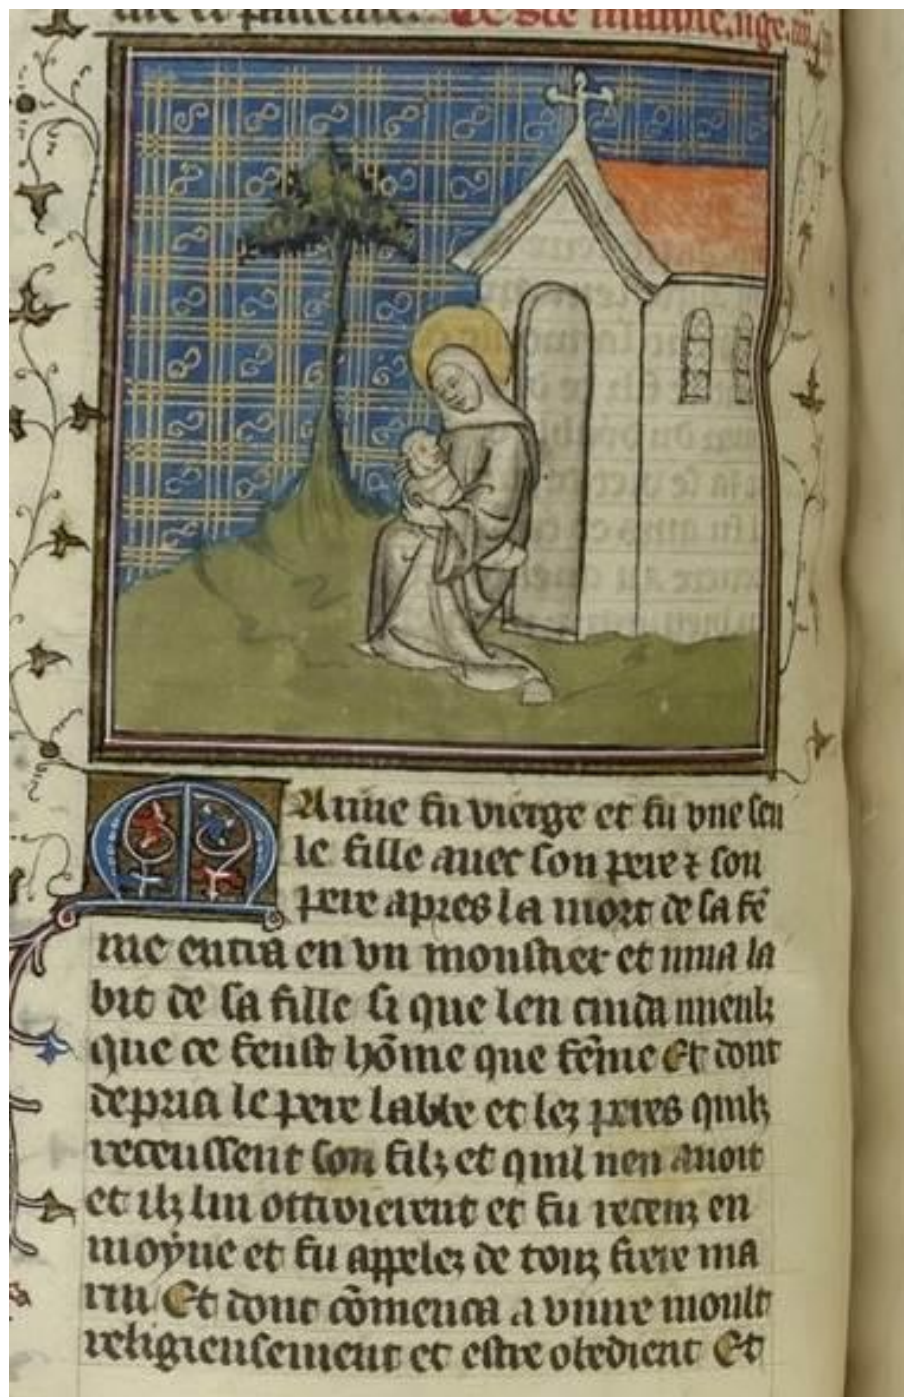 me et patience. De ste marine, vge.
Marine fu vierge et fu vne seu
le fille auec son pere ⁊ son
pere apres la mort de sa fē
me entra en vn monstier et mua la
bit de sa fille si que len cuida mieulz
que ce feust hōme que fēme Et dont
depria le pere labbe et lez peres quilz
receussent son filz et quil nen auoit
et ilz lui ottroierent et fu receuz en
moyne et fu appelez de touz frere ma
rin Et dont cōmenca a viure moult
religieusement et estre obedient Et